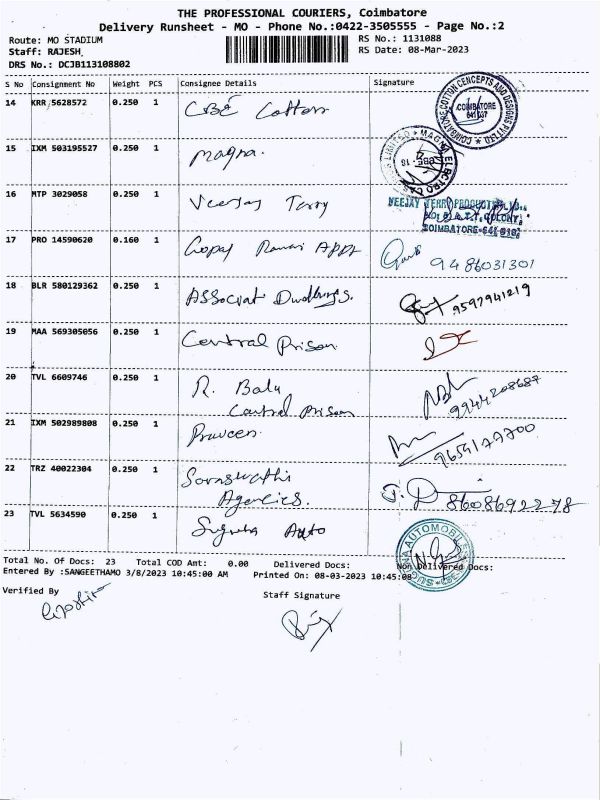 THE PROFESSIONAL COURIERS, Coimbatore
Delivery Runsheet - MO - Phone No.:0422-3505555 - Page No.:2
Route: MO STADIUM
RS No.: 1131088
Staff: RAJESH,
RS Date: 08-Mar-2023
DRS No.: DCJB113108802
S No Consignment No Weight PCS Consignee Details Signature
14 KRR 5628572 0.250 1 CBE Cotton
COIMBATORE COTTON CENCEPTS AND DESIGNS PVT LTD
COIMBATORE
641 037
15 IXM 503195527 0.250 1 Magna.
MAGNA ELECTRO CASTINGS LIMITED
CBE - 18
16 MTP 3029058 0.250 1 Veejay Terry
VEEJAY TERRY PRODUCTS
COIMBATORE-641 018
17 PRO 14590620 0.160 1 Gopal Appt
9486031301
18 BLR 580129362 0.250 1 Associat
9597941219
19 MAA 569305056 0.250 1 Central Prison
20 TVL 6609746 0.250 1 R. Balu
Central Prison
9944208687
21 IXM 502989808 0.250 1 Praveen.
9659177700
22 TRZ 40022304 0.250 1
Agencies.
8608692278
23 TVL 5634590 0.250 1 Suguna Auto
SUGUNA AUTOMOBILES
Total No. Of Docs: 23 Total COD Amt: 0.00 Delivered Docs: Non Delivered Docs:
Entered By :SANGEETHAMO 3/8/2023 10:45:00 AM Printed On: 08-03-2023 10:45:00
Verified By
Staff Signature